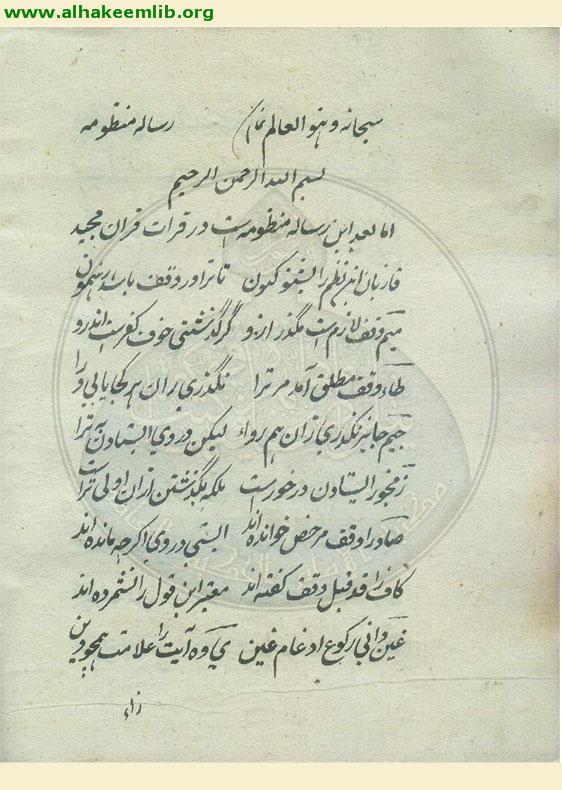 www.alhakeemlib.org
سبحانه و هو العالم تمام رساله منظومه
بسم الله الرحمن الرحیم
اما بعد این رساله منظومه است در قرات قران مجید
قاریان این نظم را بشنو کنون تا ترا در وقف باشد رهنمون
میم وقف لازم است مگذر ازو گر گذشتی خوف کفرست اندرو
طاء وقف مطلق آمد مر ترا نگذری زان هر کجا یابی ورا
جیم جایز نگذری زان هم رواء لیکن در وی ایستادن به ترا
ز مجوز ایستادن در خورست بلکه بگذشتن ازان اولی تراست
صاد را وقف مرخص خوانده اند ایستی در وی اگرچه مانده اند
کاف را قد قیل وقف گفته اند معتبر این قول را نشمرده اند
عین رکوع ادغام غین ی و ه آیت را علامت همچو دین
زاء